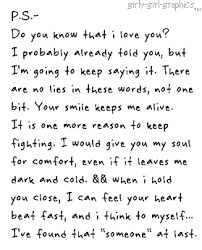 girly-girl-graphics™
P.S.-
Do you know that i love you?
I probably already told you, but
I'm going to keep saying it. There
are no lies in these words, not one
bit. Your smile keeps me alive.
It is one more reason to keep
fighting. I would give you my soul
for comfort, even if it leaves me
dark and cold. && when i hold
you close, I can feel your heart
beat fast, and i think to myself...
I've found that "someone" at last.